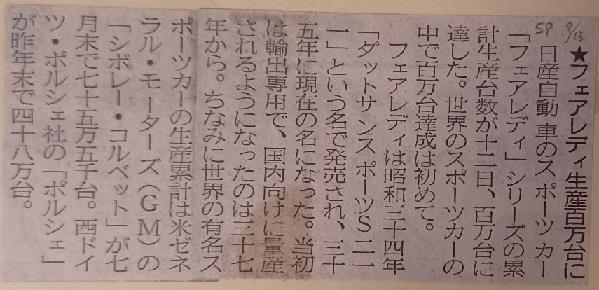 ★フェアレディ生産百万台に
日産自動車のスポーツカー
「フェアレディ」シリーズの累
計生産台数が十二日、百万台に
達した。世界のスポーツカーの
中で百万台達成は初めて。
フェアレディは昭和三十四年
「ダットサンスポーツS二一
一」という名で発売され、三十
五年に現在の名になった。当初
は輸出専用で、国内向けに量産
されるようになったのは三十七
年から。ちなみに世界の有名ス
ポーツカーの生産累計は米ゼネ
ラル・モーターズ（GM）の
「シボレー・コルベット」が七
月末で七十五万五千台。西ドイ
ツ・ポルシェ社の「ポルシェ」
が昨年末で四十八万台。